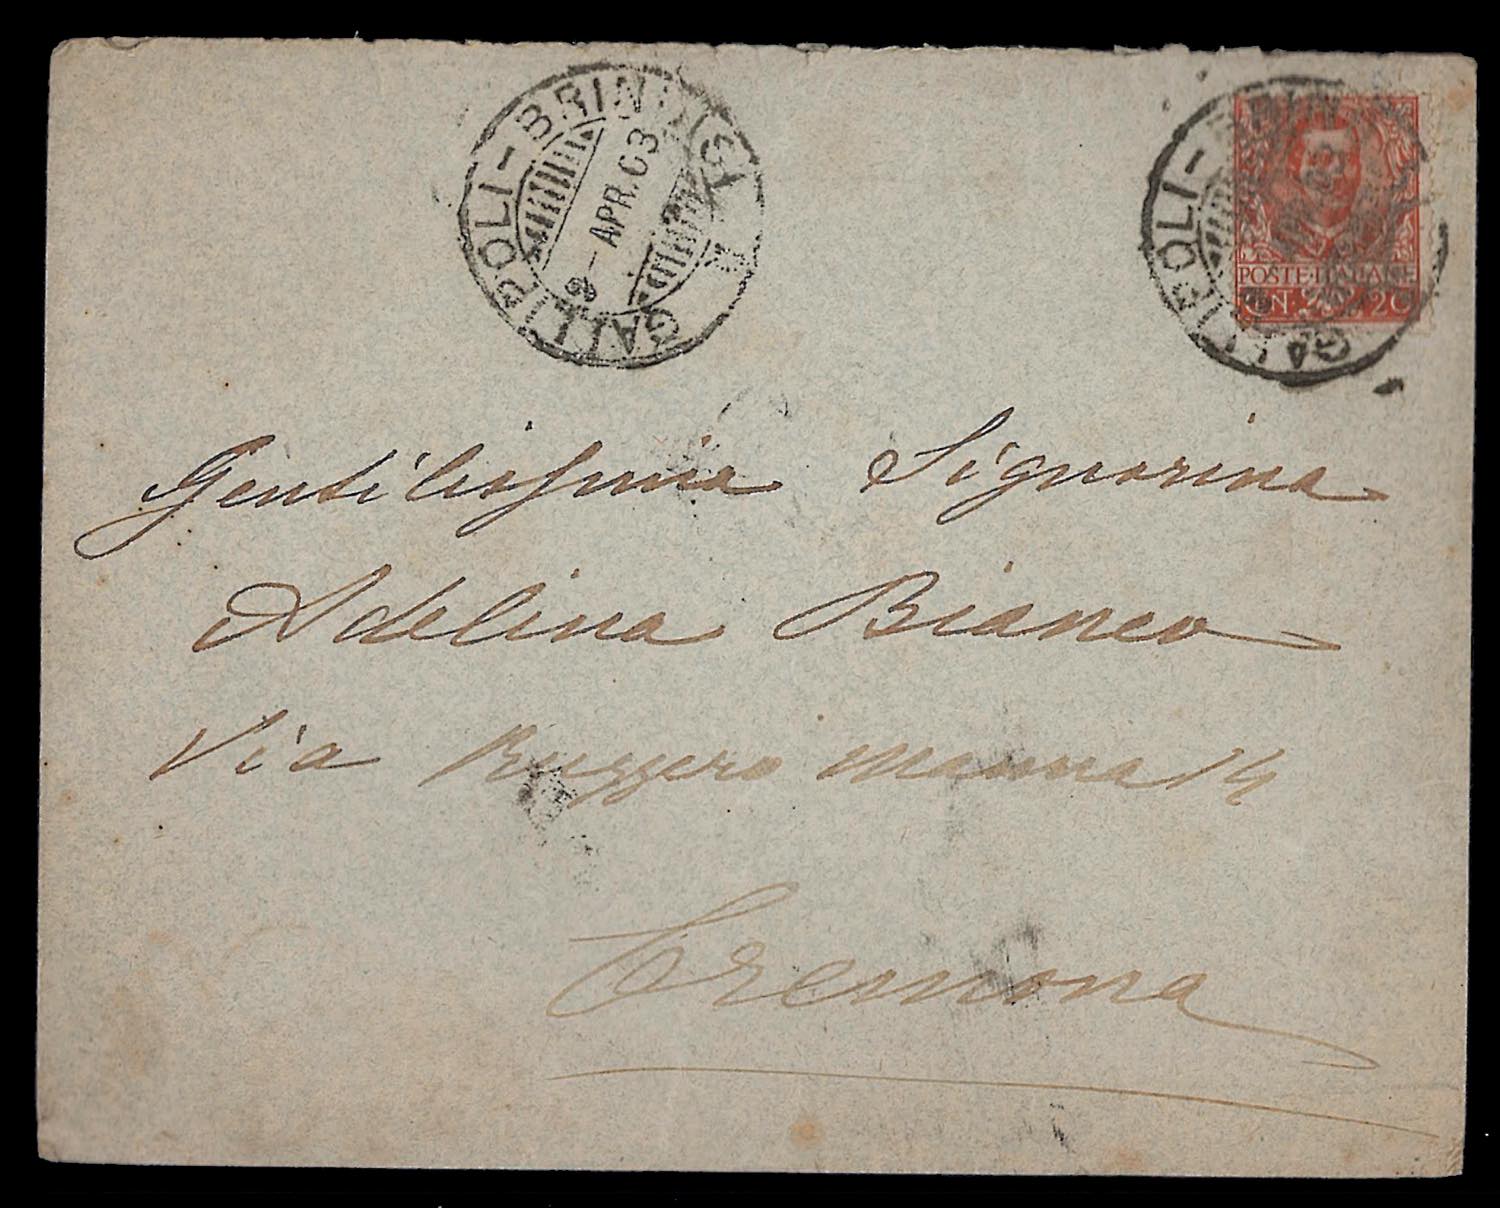 GALLIPOLI-BRINDISI
APR.03
GALLIPOLI-BRIN
POSTE·ITALIANE
CN. 20
Gentilissima Signorina
Adelina Bianco
Via Ruggero Manna 14
Cremona